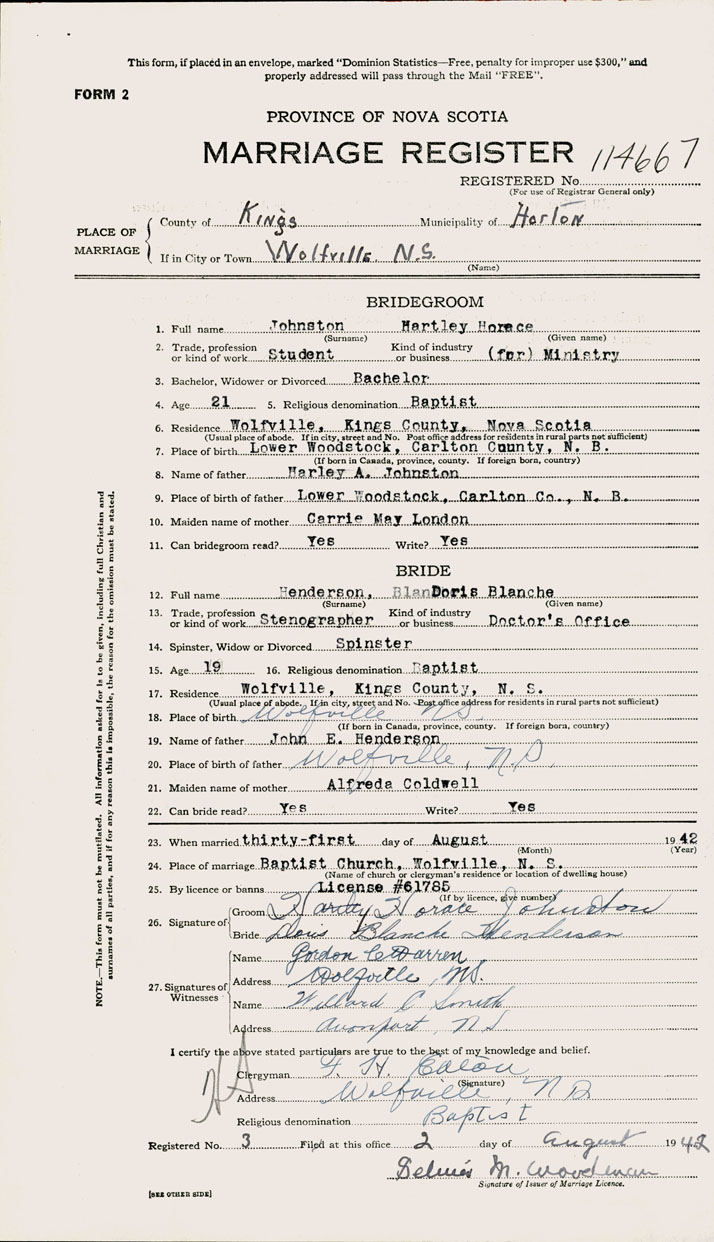 This form, if placed in an envelope, marked "Dominion Statistics—Free, penalty for improper use $300," and
properly addressed will pass through the Mail "FREE".
FORM 2
PROVINCE OF NOVA SCOTIA
MARRIAGE REGISTER 114667
REGISTERED No.
(For use of Registrar General only)
PLACE OF MARRIAGE
County of Kings Municipality of Horton
If in City or Town Wolfville N.S.
(Name)
BRIDEGROOM
1. Full name Johnston Hartley Horace
(Surname) (Given name)
2. Trade, profession or kind of work Student Kind of industry or business (for) Ministry
3. Bachelor, Widower or Divorced Bachelor
4. Age 21 5. Religious denomination Baptist
6. Residence Wolfville, Kings County, Nova Scotia
(Usual place of abode. If in city, street and No. Post office address for residents in rural parts not sufficient)
7. Place of birth Lower Woodstock, Carlton County, N. B.
(If born in Canada, province, county. If foreign born, country)
8. Name of father Harley A. Johnston
9. Place of birth of father Lower Woodstock, Carlton Co., N. B.
10. Maiden name of mother Carrie May London
11. Can bridegroom read? Yes Write? Yes
BRIDE
12. Full name Henderson, Blan Doris Blanche
(Surname) (Given name)
13. Trade, profession or kind of work Stenographer Kind of industry or business Doctor's Office
14. Spinster, Widow or Divorced Spinster
15. Age 19 16. Religious denomination Baptist
17. Residence Wolfville, Kings County, N. S.
(Usual place of abode. If in city, street and No. Post office address for residents in rural parts not sufficient)
18. Place of birth Wolfville N.S.
(If born in Canada, province, county. If foreign born, country)
19. Name of father John E. Henderson
20. Place of birth of father Wolfville, N.S.
21. Maiden name of mother Alfreda Coldwell
22. Can bride read? Yes Write? Yes
23. When married thirty-first day of August 1942
(Month) (Year)
24. Place of marriage Baptist Church, Wolfville, N. S.
(Name of church or clergyman's residence or location of dwelling house)
25. By licence or banns License #61785
(If by licence, give number)
26. Signature of
Groom Hartley Horace Johnston
Bride Doris Blanche Henderson
27. Signatures of Witnesses
Name Gordon C Warren
Address Wolfville, N.S.
Name Willard C Smith
Address Avonport, N.S.
I certify the above stated particulars are true to the best of my knowledge and belief.
Clergyman F. H. Eaton
(Signature)
Address Wolfville, N S
Religious denomination Baptist
Registered No. 3 Filed at this office 2 day of August 1942
M. Woodman
Signature of Issuer of Marriage Licence.
[SEE OTHER SIDE]
NOTE.—This form must not be mutilated. All information asked for is to be given, including full Christian and
surnames of all parties, and if for any reason this is impossible, the reason for the omission must be stated.